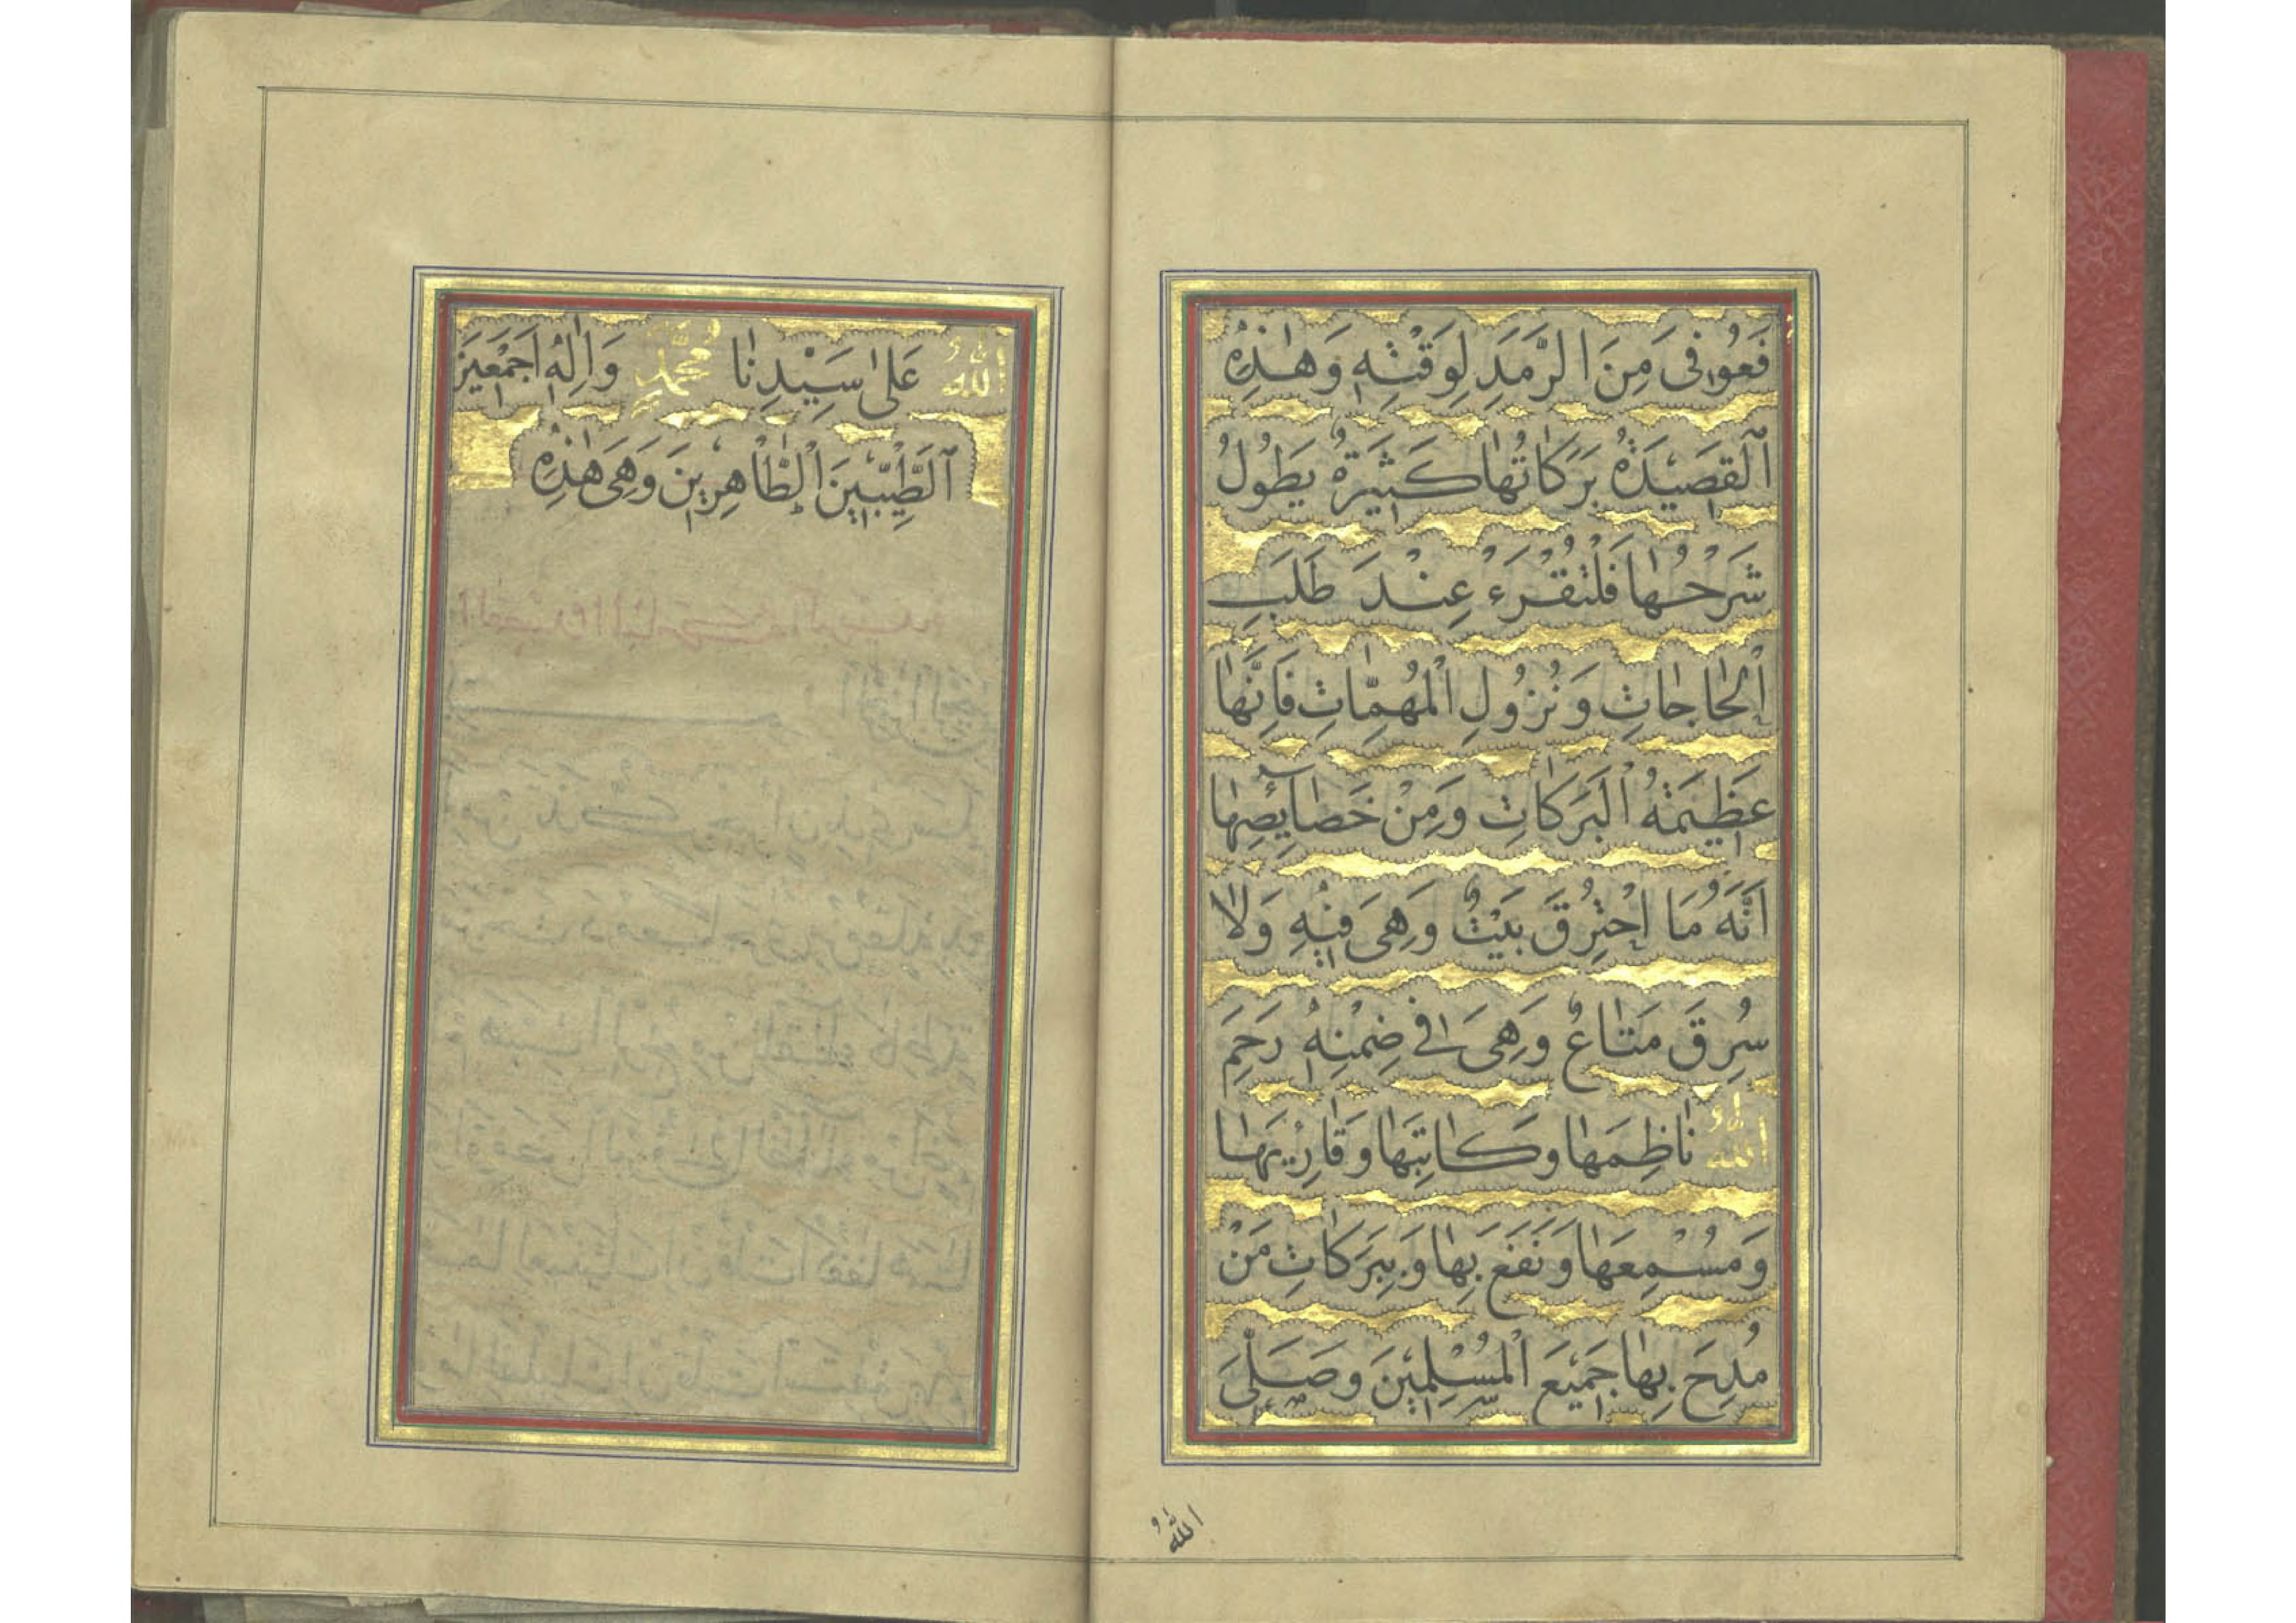 فَعُوفِىَ مِنَ الرَّمَدِ لِوَقْتِهِ وَهٰذِهِ
اَلْقَصِيْدَةُ بَرَكَاتُهَا كَثِيْرَةٌ يَطُولُ
شَرْحُهَا فَلْتُقْرَءْ عِنْدَ طَلَبِ
الْحَاجَاتِ وَنُزُولِ الْمُهِمَّاتِ فَاِنَّهَا
عَظِيْمَةُ الْبَرَكَاتِ وَمِنْ خَصَآئِصِهَا
اَنَّهُ مَا احْتُرِقَ بَيْتٌ وَهِىَ فِيْهِ وَلَا
سُرِقَ مَتَاعٌ وَهِىَ فِى ضِمْنِهِ رَحِمَ
اللهُ نَاظِمَهَا وَكَاتِبَهَا وَقَارِيَهَا
وَمُسْمِعَهَا وَنَفَعَ بِهَا وَبِبَرَكَاتِ مَنْ
مُدِحَ بِهَا جَمِيْعَ الْمُسْلِمِيْنَ وَصَلَّى
الله
اللهُ عَلٰى سَيِّدِنَا مُحَمَّدٍ وَاٰلِهِ اَجْمَعِيْنَ
اَلطَّيِّبِيْنَ الطَّاهِرِيْنَ وَهِىَ هٰذِهِ